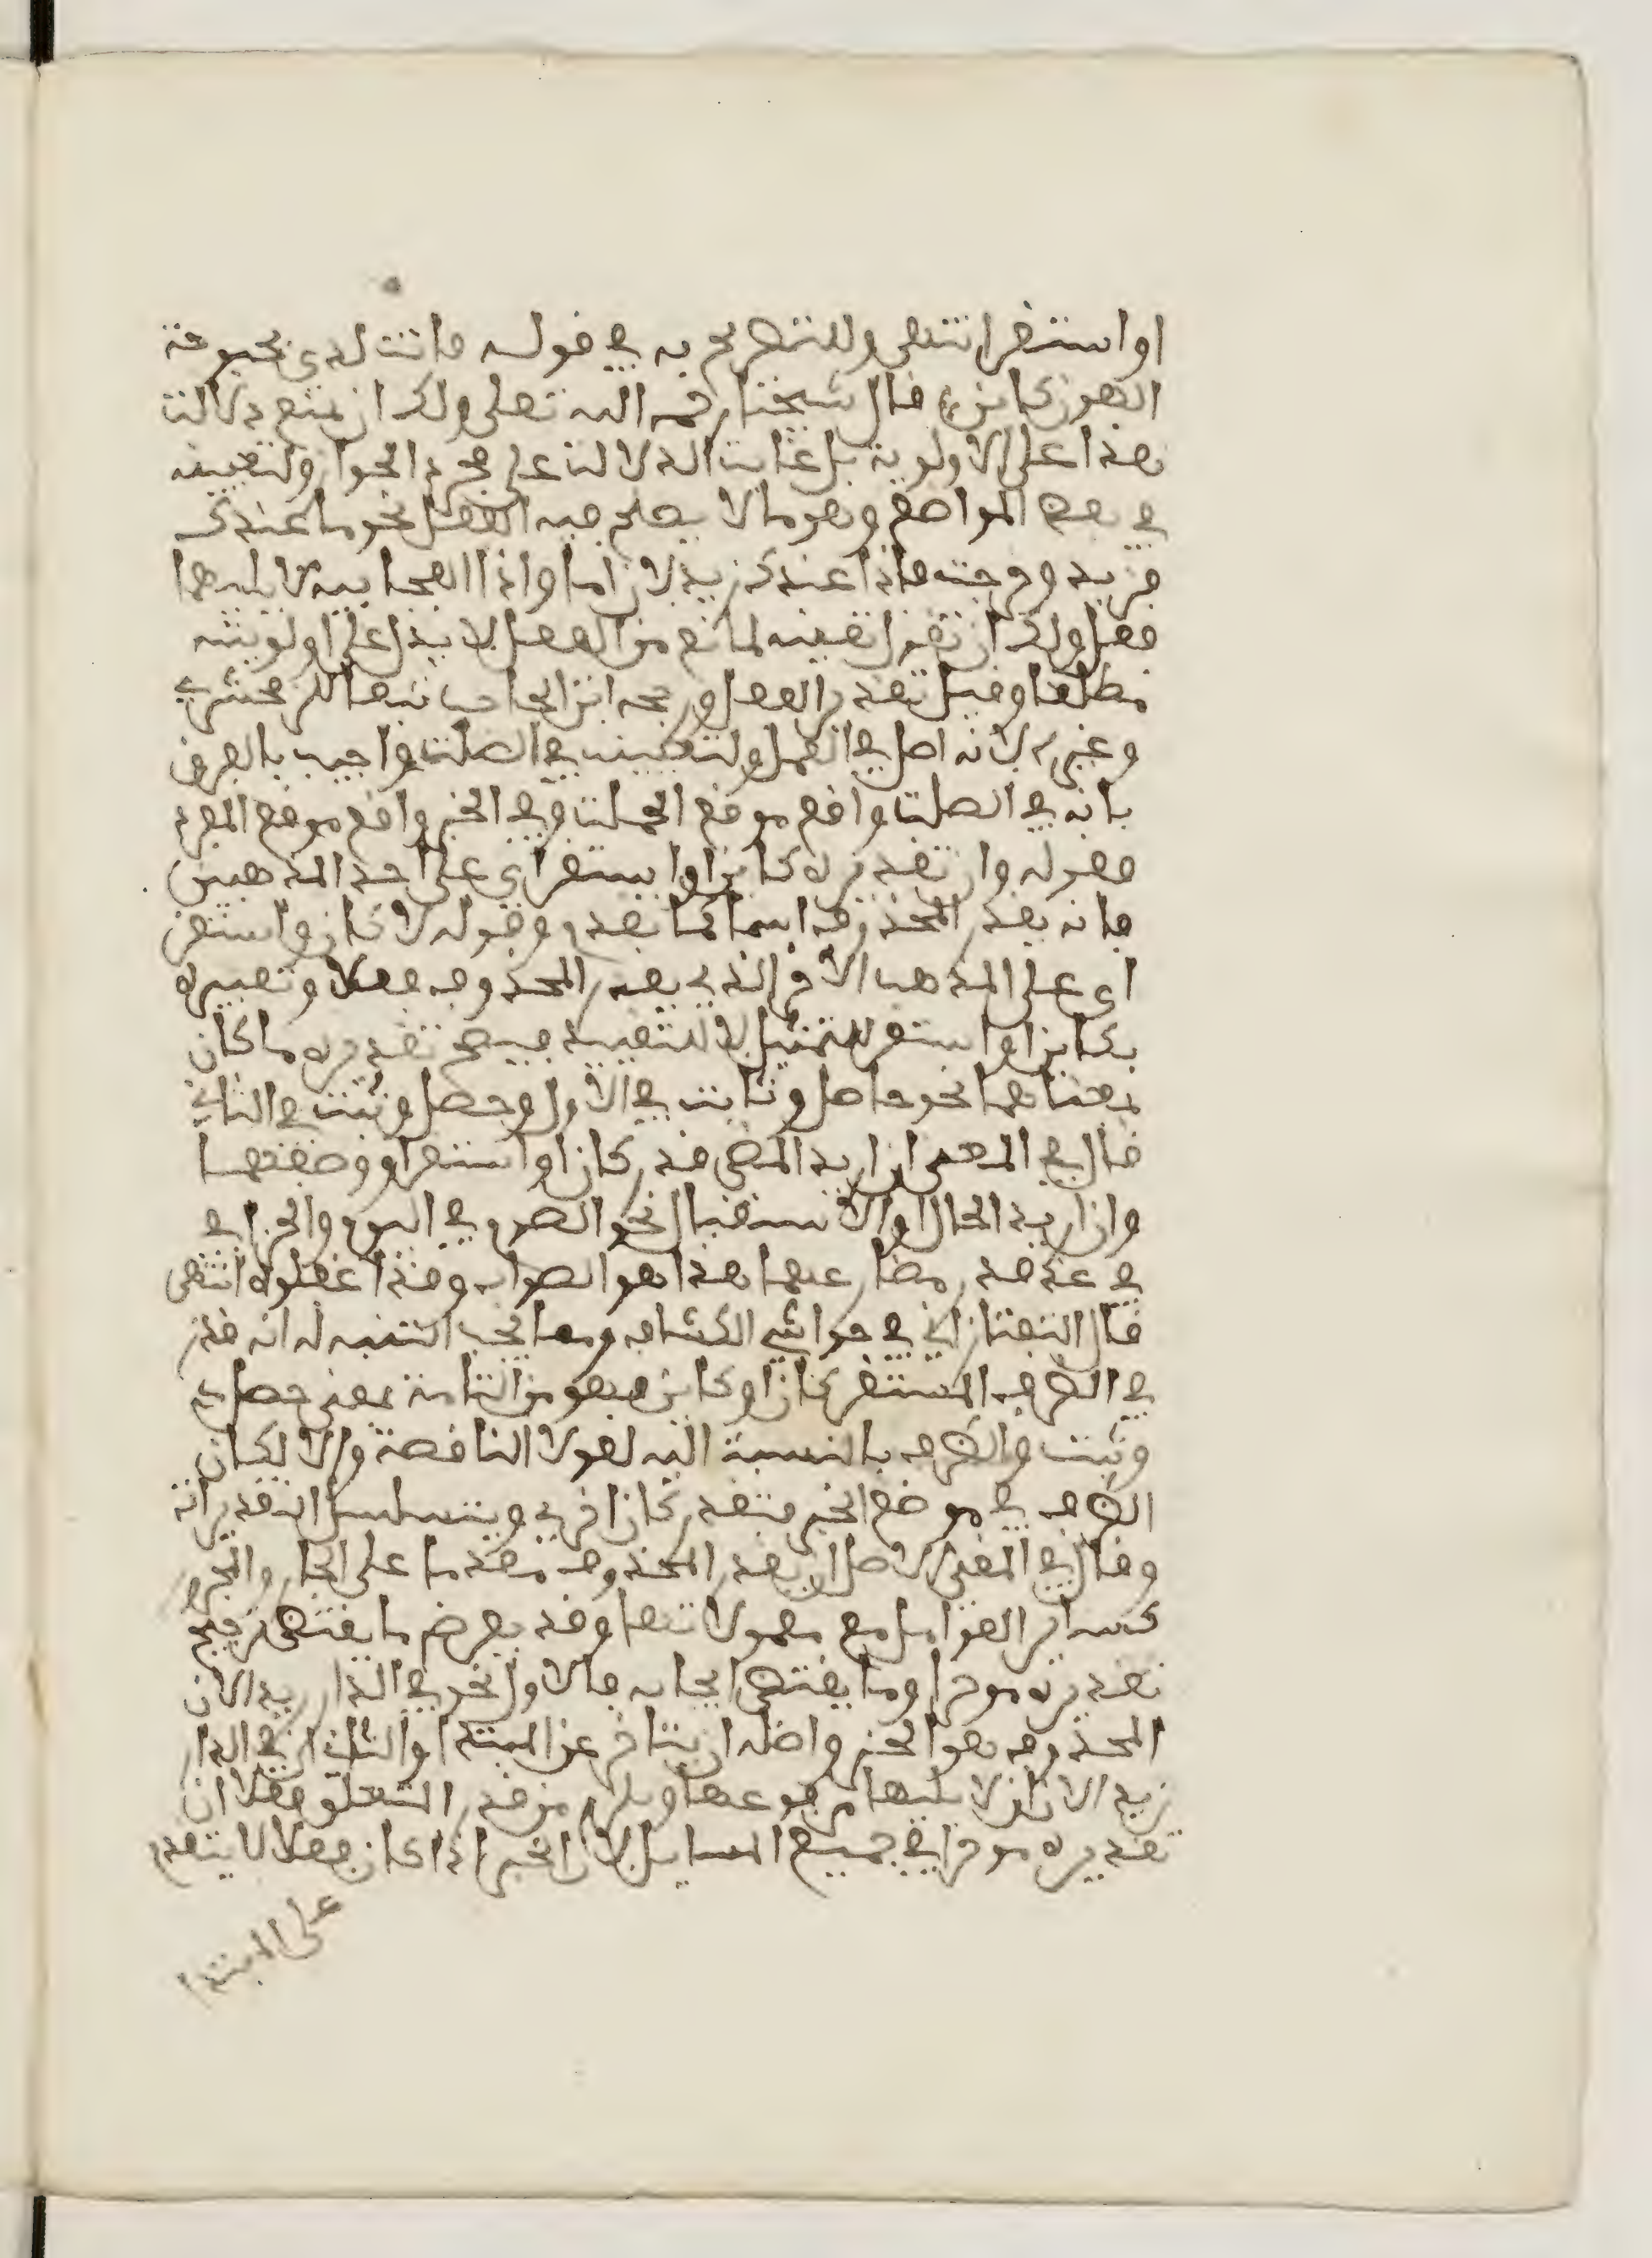 او استقر انتهى وللتصريح به في قوله فانت لدى بحبوحة
الهون كائن قال شيخنا رحمه الله تعلى ولك ان تمنع دلالت
هذا على الاولوية بل غايت الدلالت على مجرد الجواز ولتعيينه
في بعض المواضع وهو ما لا يصلح فيه الفعل نحو اما عندك
فزيد وخرجت فاذا عندك زيد لان اما واذا الفجايية لا يليهما
فعل ولك ان تقول تعينه لمانع من الفعل لا يدل على اولويته
مطلقا وقيل تقدير الفعل ورجحه ابن الحاجب تبعا للزمخشري
وغيره لانه اصل في العمل ولتعيينه في الصلت واجيب بالفرق
بانه في الصلت واقع موقع الجملت وفي الخبر واقع موقع المفرد
فقوله وان تقديره كائن او مستقر اي على احد المذهبين
فانه يقدر المحذوف اسما كما تقدم وقوله لا كان واستقر
اي على المذهب الاخر الذي يقدر المحذوف فعلا وتعبيره
بكائن او استقر للتمثيل لا للتقييد فيصح تقديره ما كان
بمعناهما نحو حاصل وثابت في الاول وحصل وثبت في الثاني
قال في المغني ان اريد المضي قدر كان او استقر او وصفهما
وان اريد الحال او الاستقبال نحو الصوم في اليوم والجزاء في
في غد قدر مضارعهما هذا هو الصواب وقد اغفلوه انتهى
قال التفتازاني في حواشي الكشاف ومما يجب التنبه له انه قدر
في الظرف المستقر كان او كائن فهو من التامة بمعنى حصل
وثبت والظرف بالنسبة اليه لغو لا الناقصة والا لكان
الظرف في موضع الخبر فتقدر كان اخرى ويتسلسل التقديرات
وقال في المغني الاصل ان يقدر المحذوف مقدما على الجار والمجرور
كساير العوامل مع معمولاتها وقد يعرض ما يقتضي ترجيح
تقديره موخرا وما يقتضي ايجابه فالاول نحو في الدار زيد لان
المحذوف هو الخبر واصله ان يتاخر عن المبتدا والثاني ان في الدار
زيد لان ان لا يليها مرفوعها ويلزم من قدر المتعلق فعلا ان
تقديره موخرا في جميع المسايل لان الخبر اذا كان فعلا لا يتقدم
على المبتدا